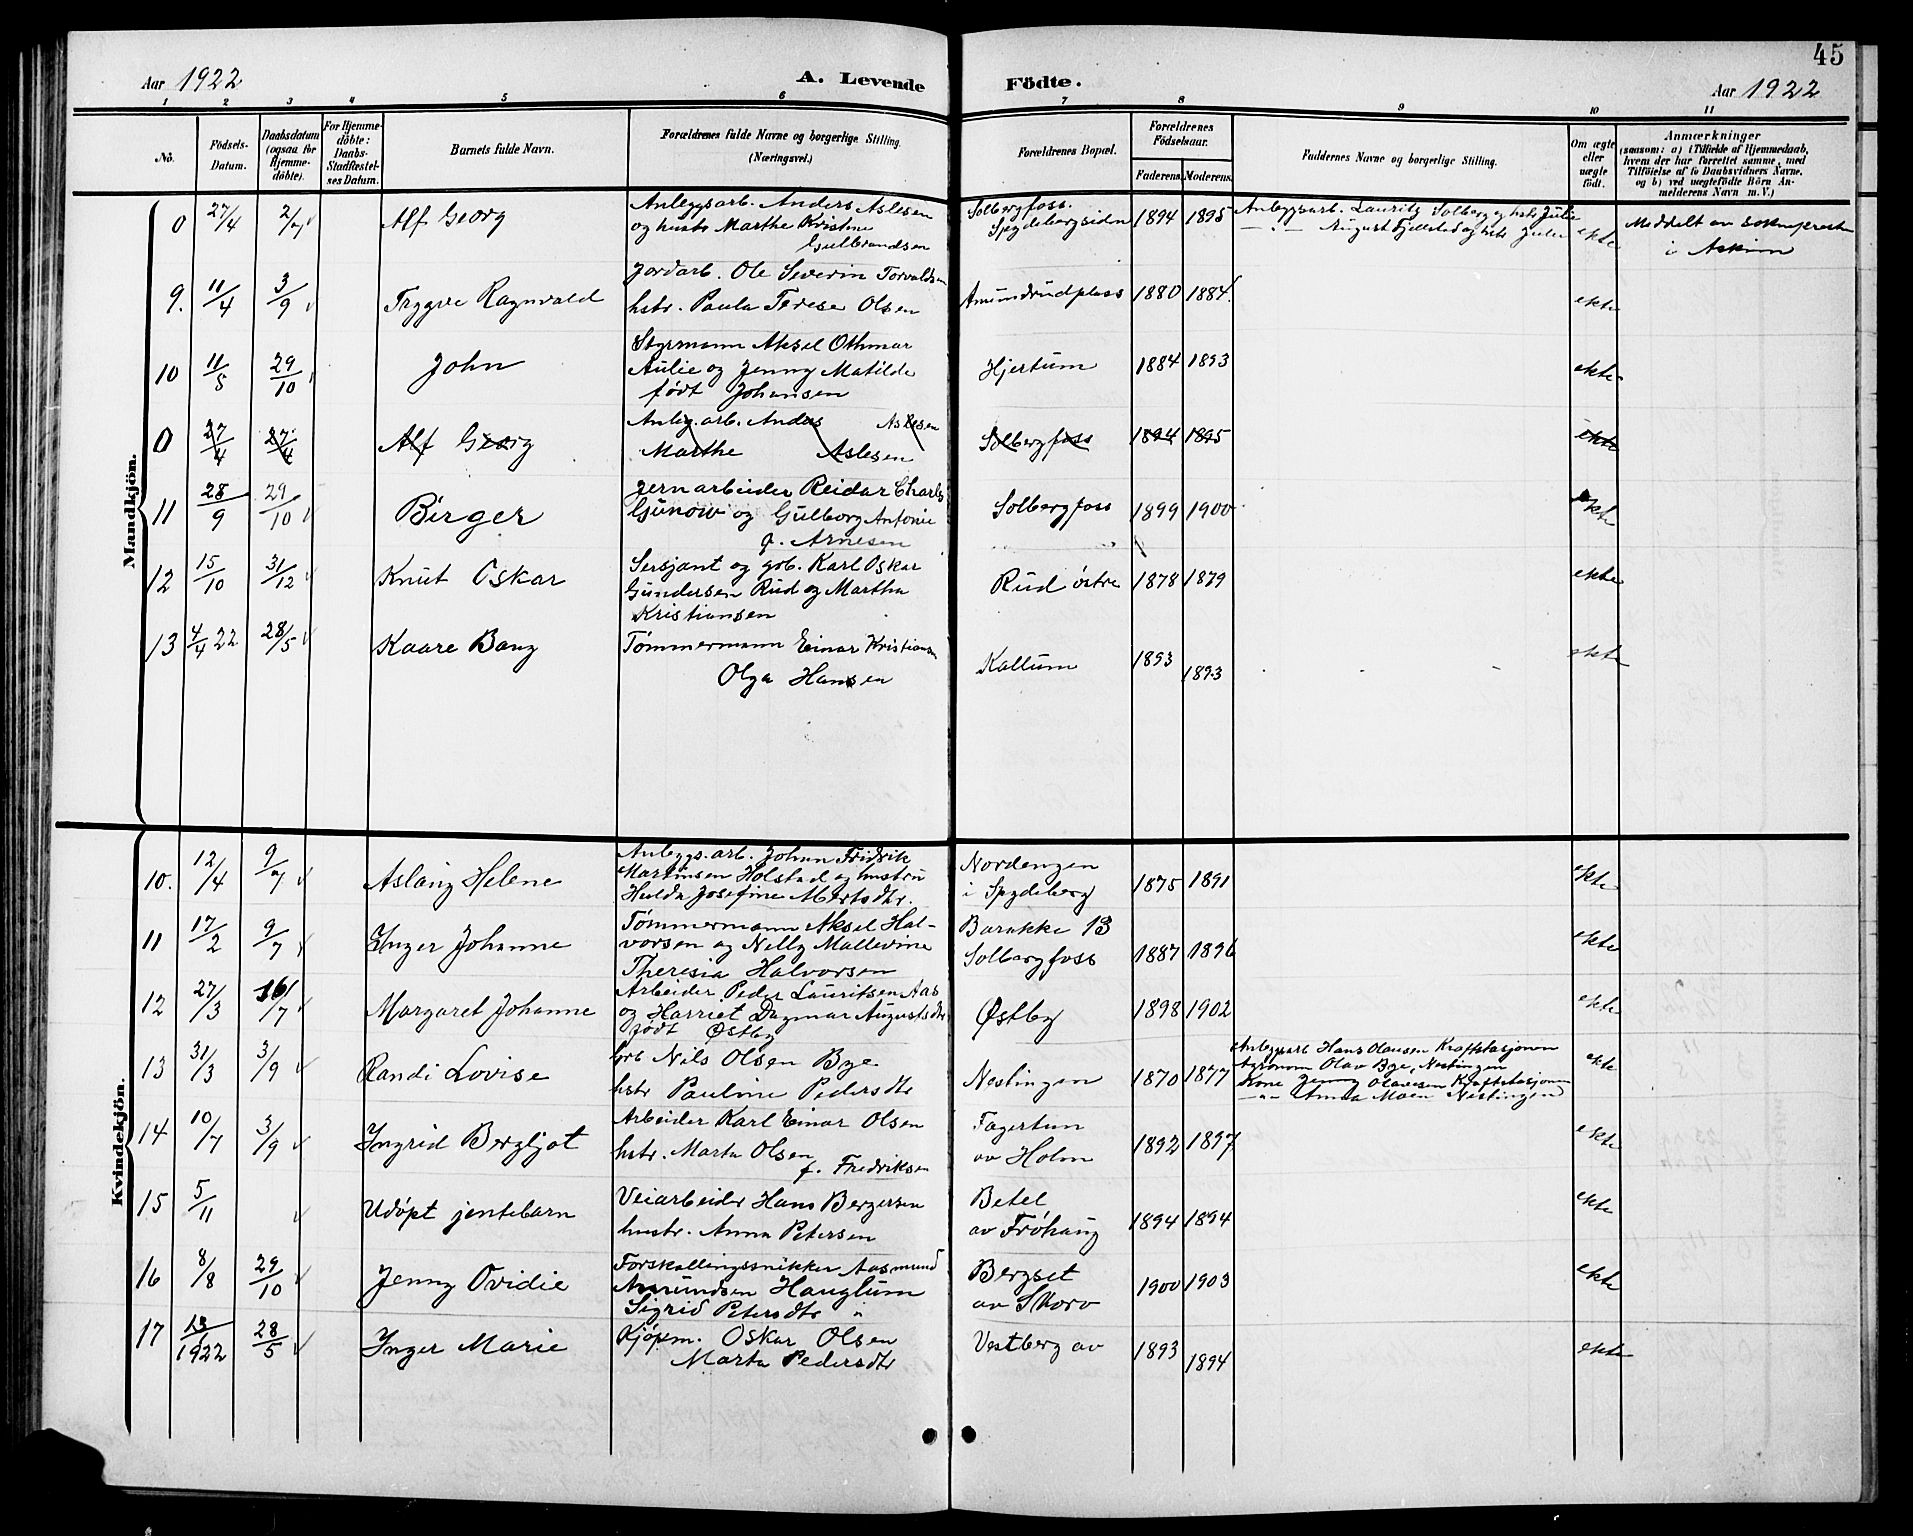 45
Aar 1922 A. Levende Födte. Aar 1922
1 2 3 4 5 6 7 8 9 10 11
No. Födsels-Datum. Daabsdatum (ogsaa for Hjemme-döbte). For Hjemme-döbte: Daabs-Stadfæstel-ses Datum. Barnets fulde Navn. Forældrenes fulde Navne og borgerlige Stilling. (Næringsvei.) Forældrenes Bopæl. Forældrenes Födselsaar. Faderens. Moderens. Faddernes Navne og borgerlige Stilling. Om ægte eller uægte födt. Anmærkninger (saasom: a) i Tilfælde af Hjemmedaab, hvem der har forrettet samme, med Tilföielse af to Daabsvidners Navne, og b) ved uegtefödte Börn An-melderens Navn m. V.)
Mandkjön.
0 27/4 2/7 Alf Georg Anleggsarb. Anders Aslesen Solbergfoss. 1894 1895 Anleggsarb. Lauritz Solberg og hstr Julie ekte Meddelt av soknepresten
og hustr Marthe Kristine Spydebergsiden —"— August Fjellstad og hstr Julie i Askim
Gulbrandsen
9. 11/4 3/9 Trygve Ragnvald Jordarb. Ole Severin Torvaldsen Amundrudplass 1880 1884. ekte
hstr. Paula Terese Olsen
10 11/8 29/10 John Styrmann Aksel Othmar Hjertum 1884 1893 ekte
Aulie og Jenny Matilde
født Johansen
0 27/4 27/4 Alf Georg Anleg. arb. Anders Aslesen Solbergfoss 1894 1895 ekte
Marthe Aslesen
11 28/9 29/10 Birger Jernarbeider Reidar Charles Solbergfoss 1899 1900 ekte
Gunow og Gulborg Antonie
f. Arnesen
12 15/10 31/12 Knut Oskar Sersjant og gb. Karl Oskar Rud østre 1878 1879 ekte
Gundersen Rud og Martha
Kristiansen
13 4/4 22 28/5 Kaare Bang Tømmermann Einar Kristiansen Kallum 1893 1893 ekte
Olga Hansen
Kvindekjön.
10. 12/4 9/7 Aslaug Helene Anleggs.arb. Johan Fridrik Nordengen 1875 1891 ekte
Martinsen Holstad og hustru i Spydeberg
Hulda Josefine Mertsdtr.
11 17/2 9/7 Inger Johanne Tømmermann Aksel Hal- Barakke 13 1887 1896 ekte
vorsen og Nelly Mallevine Solbergfoss
Theresia Halvorsen
12 27/3 16/7 Margaret Johanne Arbeider Peder Lauritsen Aas Østby 1898 1902 ekte
og Harriet Dagmar Augustsdtr
født Østby
13 31/3 3/9 Randi Lovise Grb Nils Olsen Bye Nestingen 1870 1877 Anleggsarb Hans Olausen Kraftstasjonen ekte
hstr Pauline Pedersdtr Agronom Olav Bye, Nestingen
Kone Jenny Olausen Kraftstasjonen
—"— Anna Moen Nestingen
14 10/7 3/9 Ingrid Bergljot Arbeider Karl Einar Olsen Fagertun 1892 1897 ekte
hstr. Marta Olsen av Holm
f. Fredriksen
15 5/11 Udøpt jentebarn Veiarbeider Hans Bergersen Betel 1894 1894 ekte
hustr. Anna Petersen av Frøhaug
16 8/8 29/10 Jenny Ovidie Forskallingssnikker Aasmund Bergset 1900 1903 ekte
Amundsen Hauglum av Skorv
Sigrid Petersdtr "
17 1922 28/5 Inger Marie Kjøpm. Oskar Olsen Vestberg av 1893 1894 ekte
Marta Pedersdtr